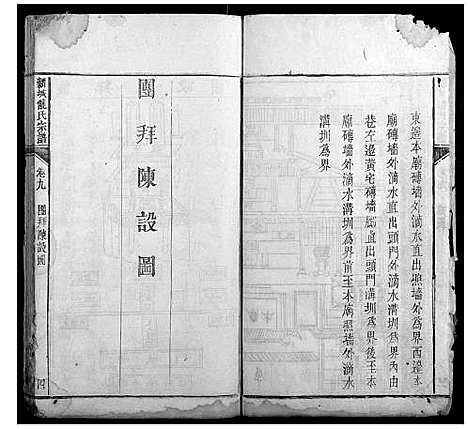 東邊本廟磚墻外滴水直出照墻外為界西邊本
廟磚墻外滴水直出頭門外滴水溝圳為界內由
巷左邊黃宅磚墻腳直出頭門溝圳為界後至本
廟磚墻外滴水溝圳為界前至本廟照墻外滴水
溝圳為界
團拜陳設圖
新城熊氏宗譜
卷九
團拜陳設圖
四